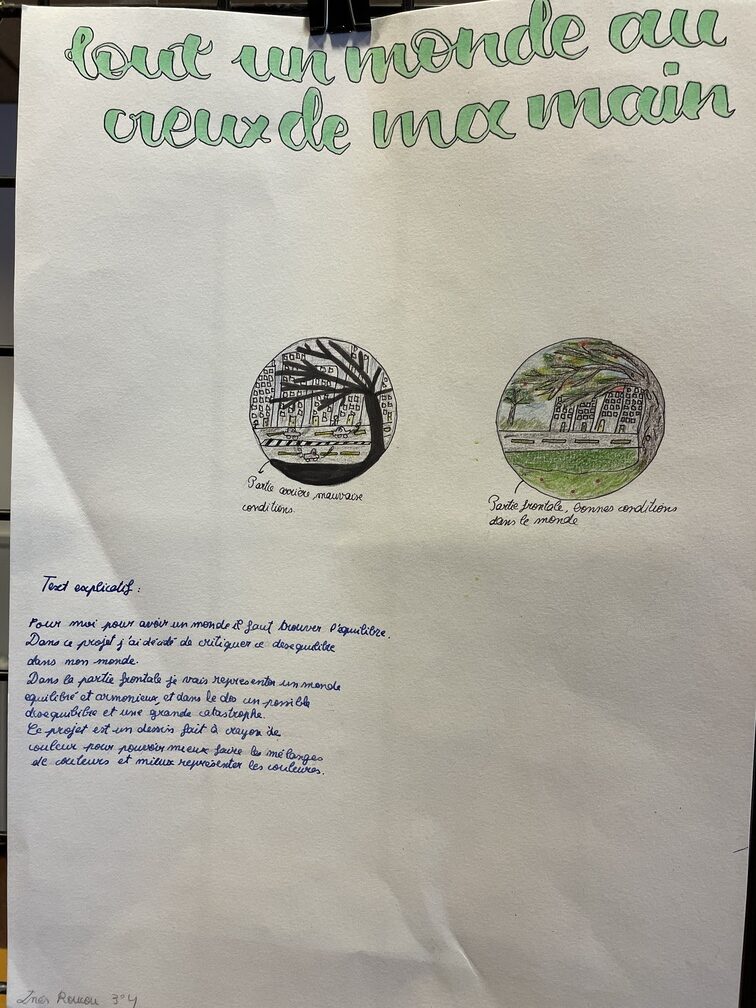 tout un monde au
creux de ma main
Partie arrière mauvaise
conditions.
Partie frontale, bonnes conditions
dans le monde
Text explicatif :
Pour moi pour avoir un monde il faut trouver l'equilibre.
Dans ce projet j'ai décidé de critiquer ce desequilibre
dans mon monde.
Dans la partie frontale je vais representer un monde
equilibré et armonieux, et dans le dos un possible
disequilibre et une grande catastrophe.
Ce projet est un dessin fait à crayon de
couleur pour pouvoir mieux faire les mélanges
de couleurs et mieux représenter les couleures.
Ines 3°4